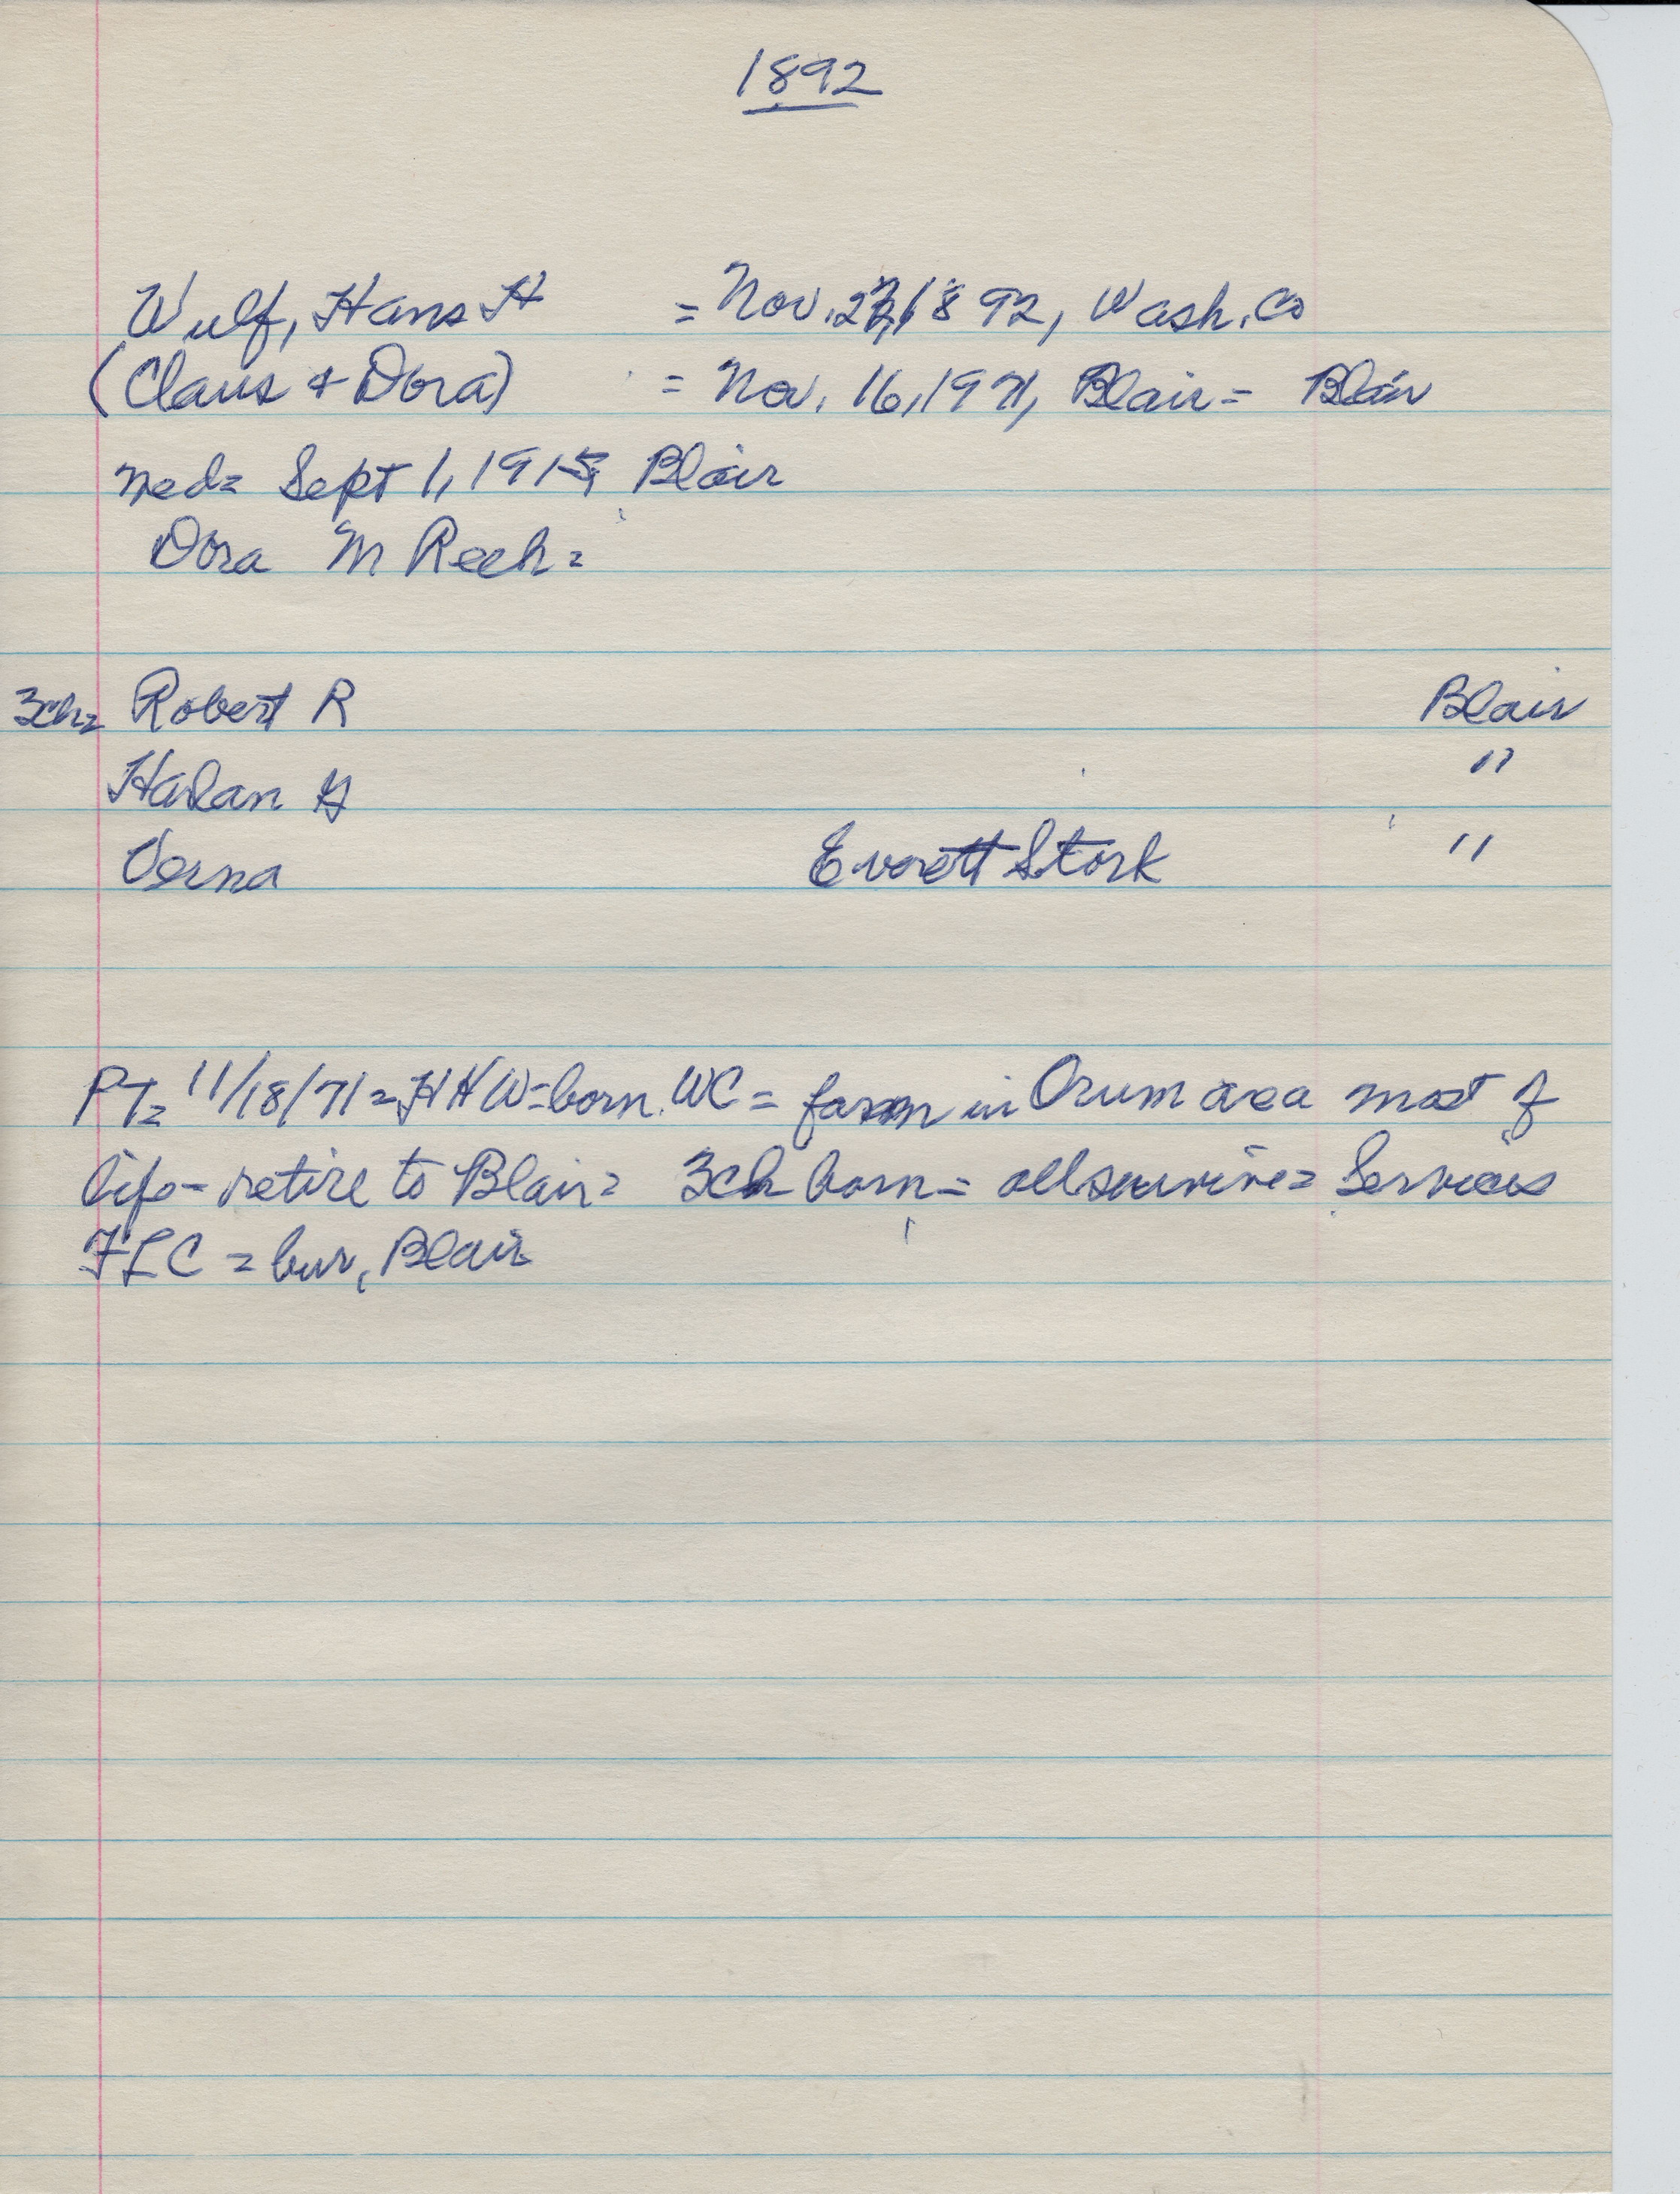 1892
Wulf, Hans H = Nov. 1892, Wash. Co
(Claus & Dora) = Nov. 16, 1971, Blair = Blair
med = Sept 1, 1915, Blair
Dora M Reeh =
3ch = Robert R Blair
Harlan G "
Verna Everett Stork "
PT = 11/18/71 = HHW = born. WC = farm in Orum area most of
life - retire to Blair = 3ch born = all survive = Services
FLC = bur, Blair